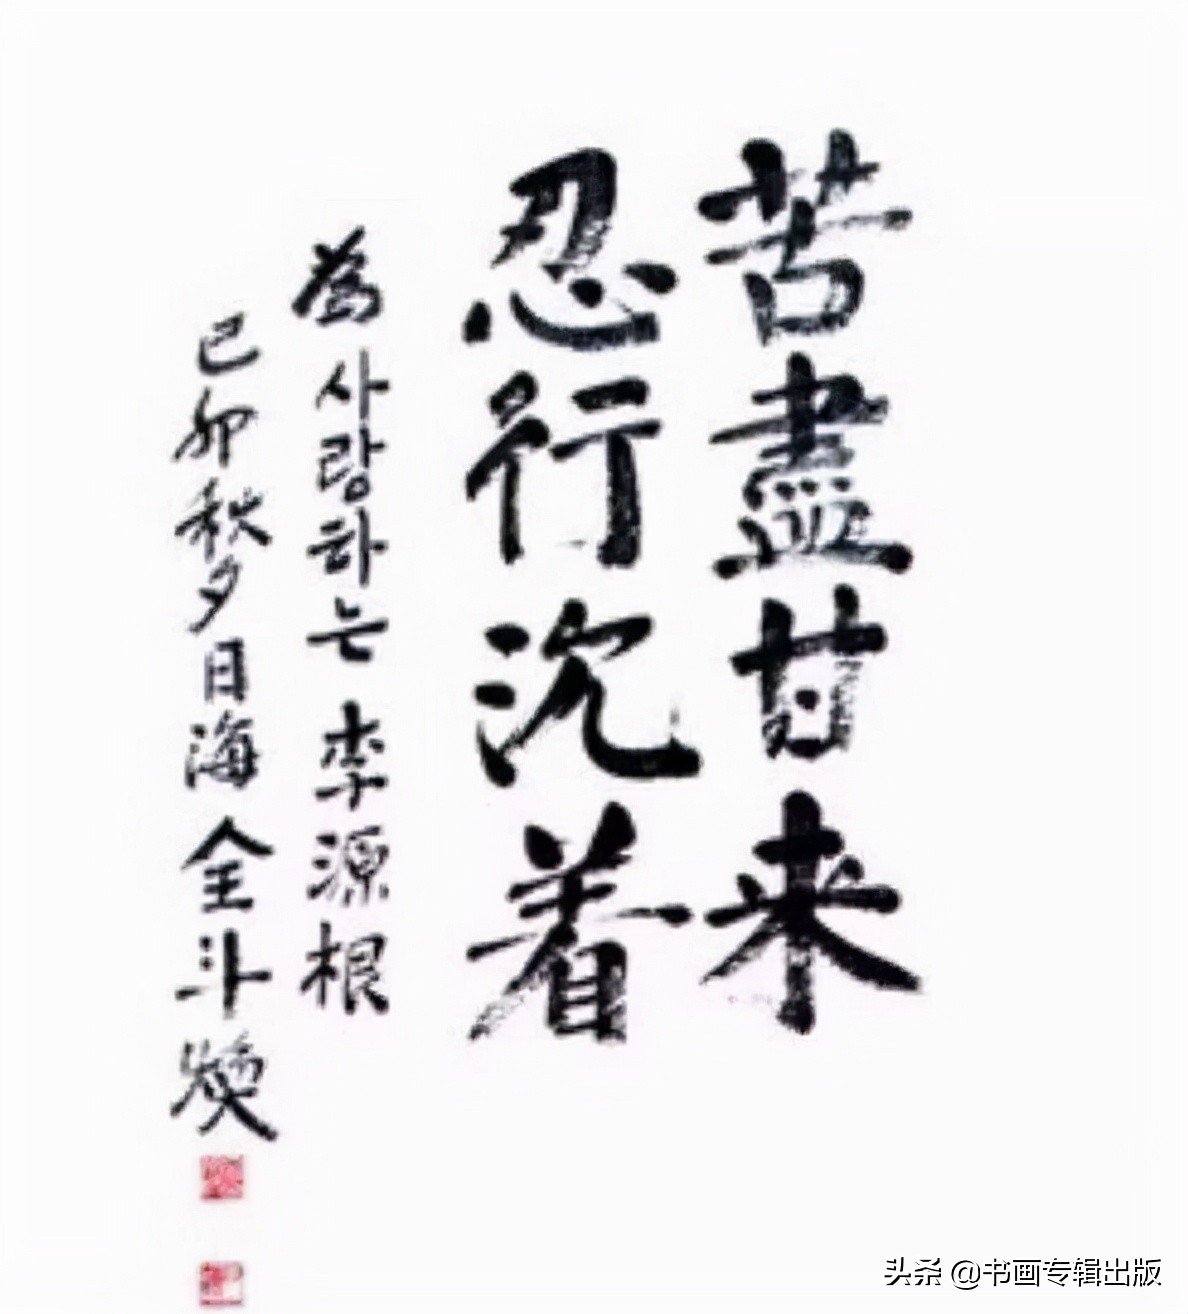 苦盡甘来
忍行沉着
為 사랑하는 李源根
己卯秋夕日海 全斗煥
头条 @书画专辑出版